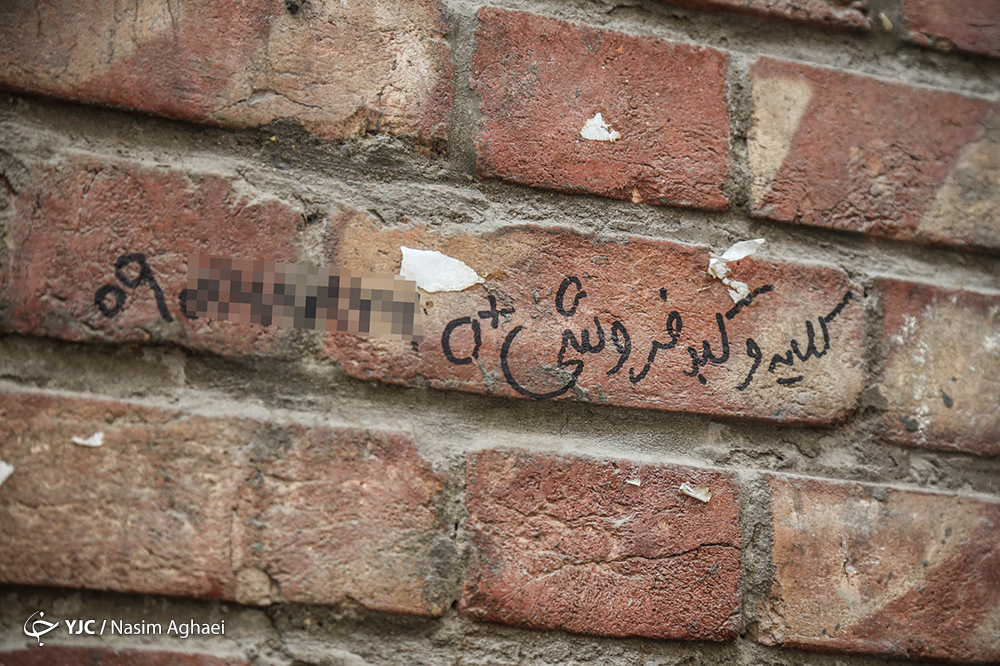 کلیه و کبد فروشی O+ ۰۹
YJC / Nasim Aghaei